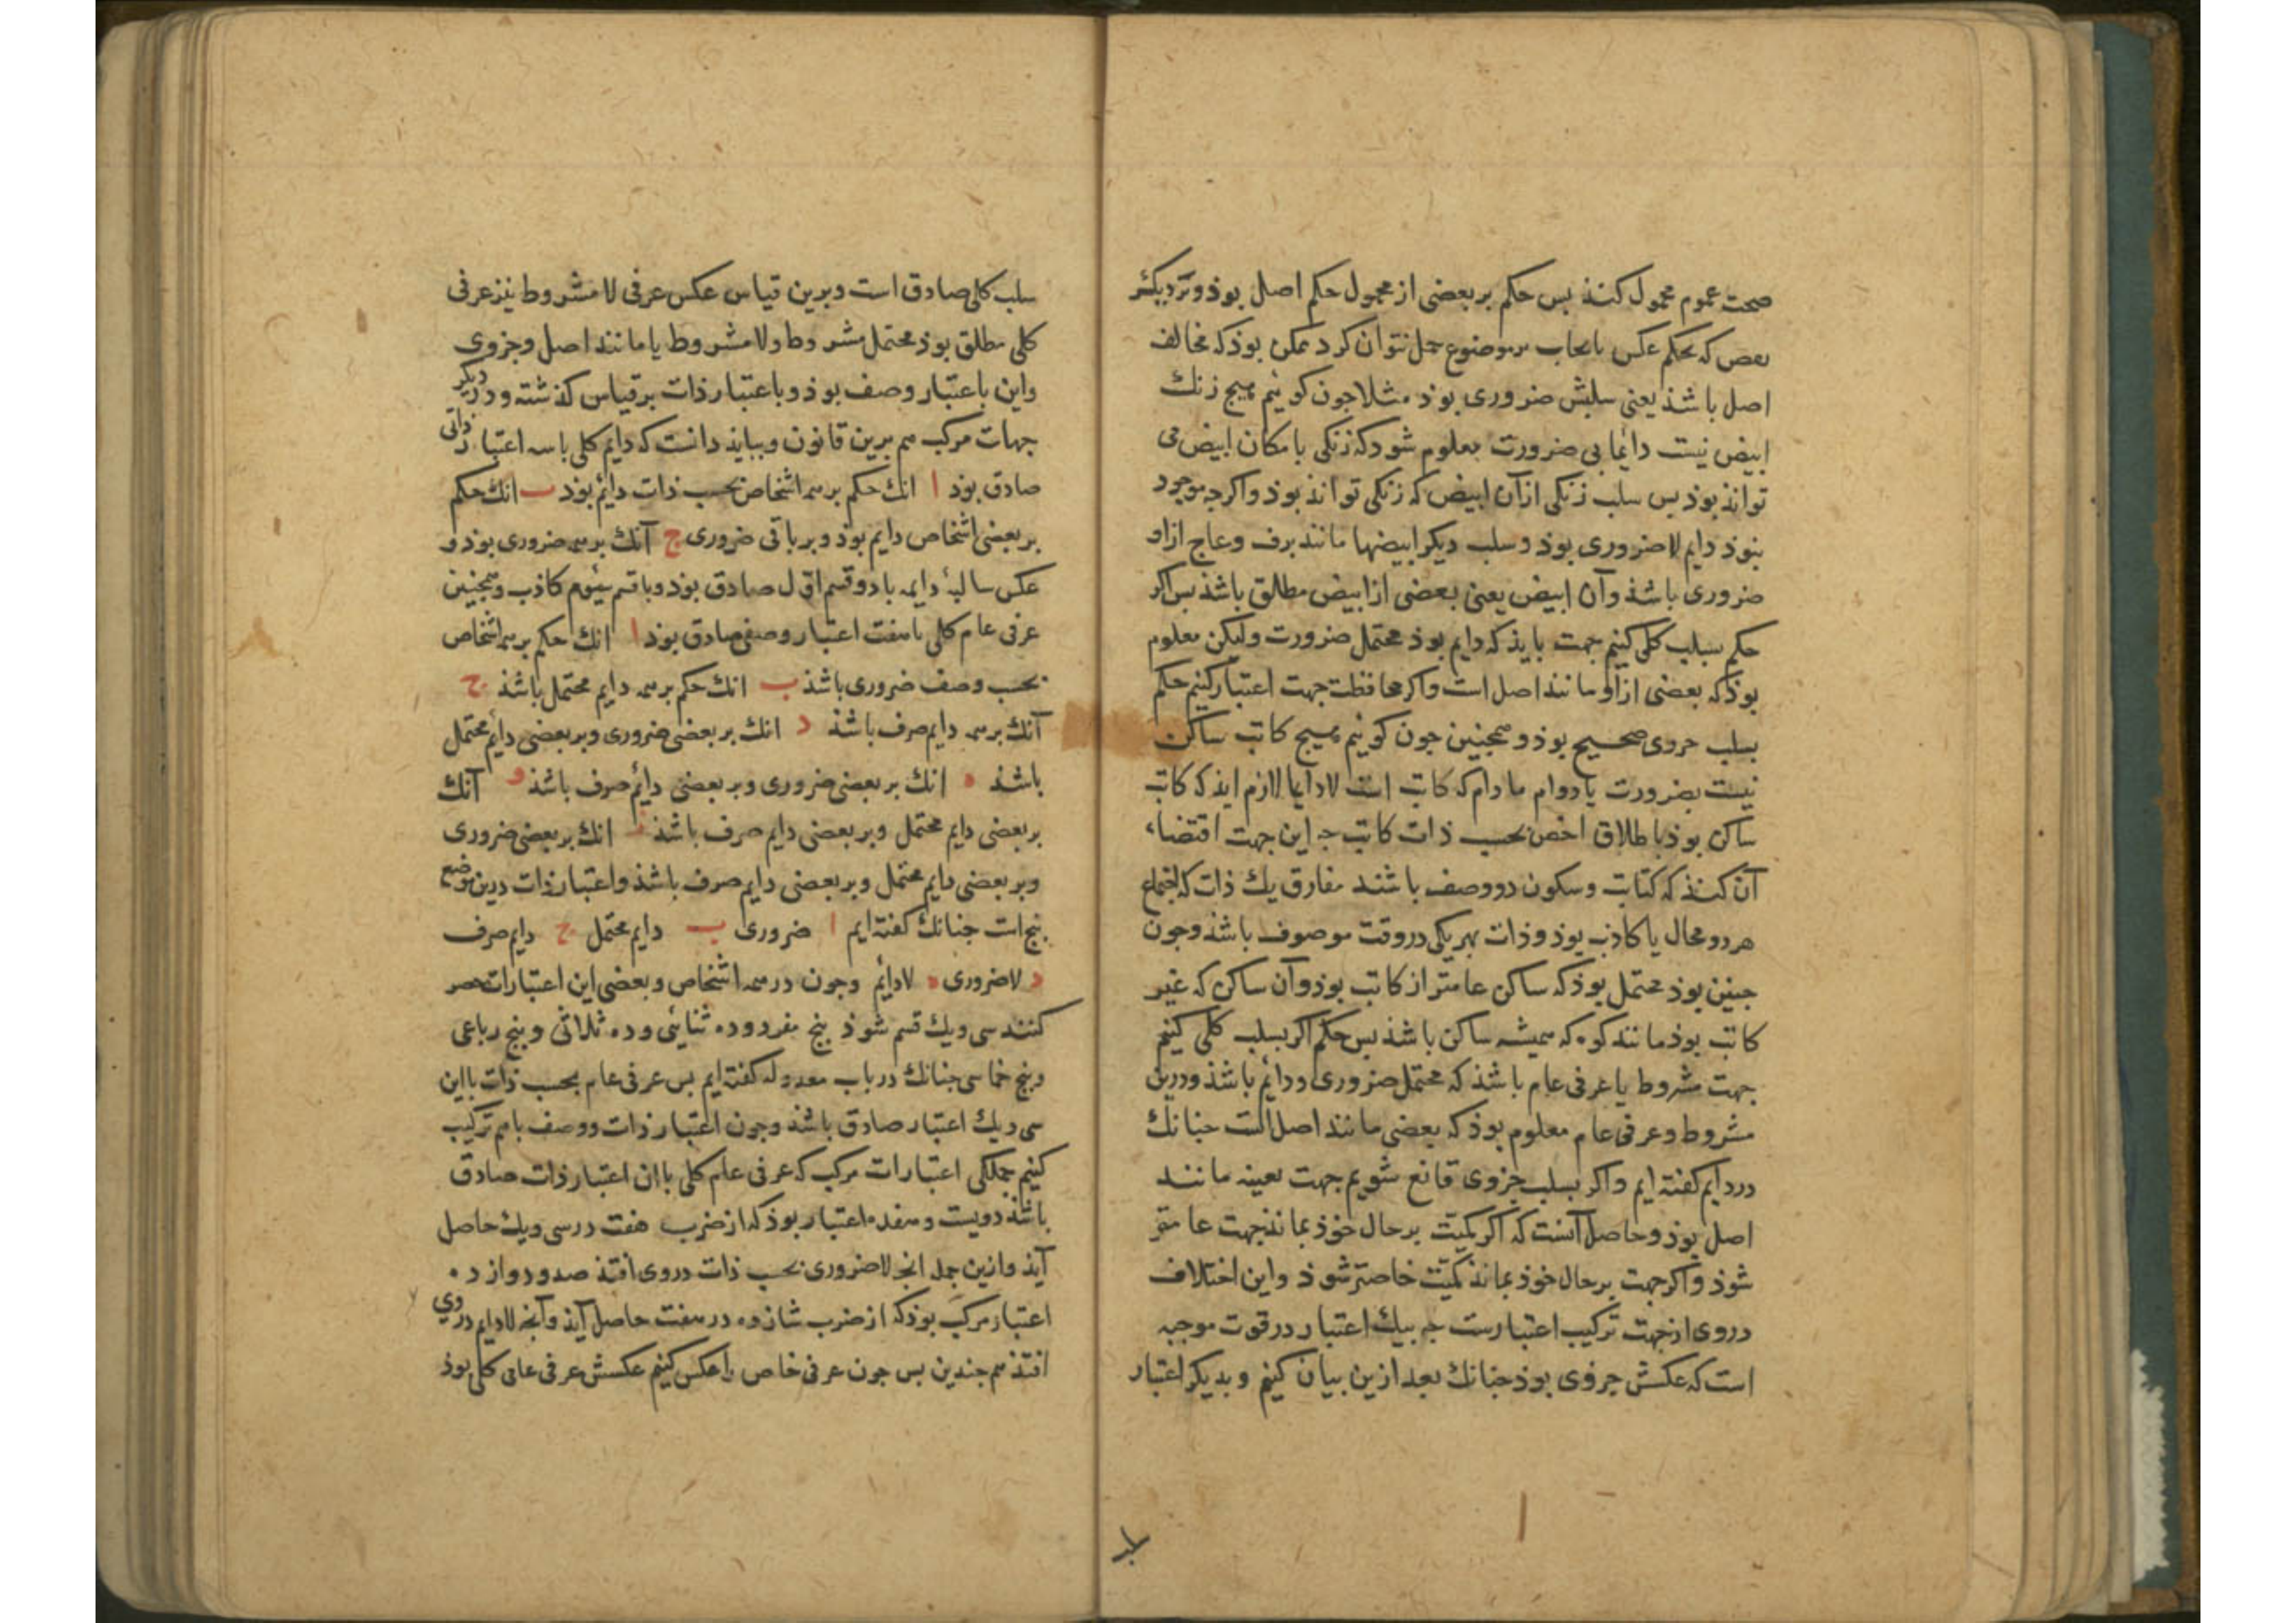 صحت عموم محمول کنذ بس حکم بر بعضی از محمول حکم اصل بوذ و بر دیکر
بعض که بحکم عکس بایجاب بر موضوع حمل نتوان کرد ممکن بوذ که مخالف
اصل باشذ یعنی سلبش ضروری بوذ مثلا جون کوئیم هیج زنکی
ابیض نیست دایما بی ضرورت معلوم شوذ که زنکی بامکان ابیض می
تواند بوذ بس سلب زنکی از آن ابیض که زنکی تواند بوذ و اکرجه موجود
نبوذ دایم لاضروری بوذ و سلب دیکر ابیضها مانند برف و عاج ازو
ضروری باشذ و آن ابیض یعنی بعضی از ابیض مطلق باشذ بس اکر
حکم بسلب کلی کنیم جهت بایذ که دایم بوذ محتمل ضرورت و لیکن معلوم
بوذ که بعضی ازاو مانند اصل است و اکر محافظت جهت اعتبار کنیم حکم
بسلب جزوی صحیح بوذ و همجنین جون کوئیم هیج کاتب ساکن
نیست بضرورت یا دوام مادام که کاتب است لادایما لازم ایذ که کاتب
ساکن بوذ باطلاق اخص بحسب ذات کاتب جه این جهت اقتضاء
آن کنذ که کتابت و سکون دو وصف باشند مفارق یک ذات که اجتماع
هر دو محال یا کاذب بوذ و ذات بهر یکی در وقت موصوف باشذ و جون
جنین بوذ محتمل بوذ که ساکن عامتر از کاتب بوذ و آن ساکن که غیر
کاتب بوذ مانند کوه که همیشه ساکن باشذ بس حکم اکر بسلب کلی کنیم
جهت مشروط یا عرفی عام باشذ که محتمل ضروری و دائم باشذ و درین
مشروط و عرفی عام معلوم بوذ که بعضی مانند اصل است جنانک
در دایم کفته ایم و اکر بسلب جزوی قانع شویم جهت بعینه مانند
اصل بوذ و حاصل آنست که اکر کمیت بر حال خوذ بماند جهت عامتر
شوذ و اکر جهت بر حال خوذ بماند کمیت خاصتر شوذ و این اختلاف
دروی از جهت ترکیب اعتبارست جه بیک اعتبار در قوت موجبه
است که عکسش جزوی بوذ جنانک بعد ازین بیان کنیم و بدیکر اعتبار
سلب کلی صادق است و برین قیاس عکس عرفی لامشروط نیز عرفی
کلی مطلق بوذ محتمل مشروط و لامشروط یا مانند اصل و جزوی
واین باعتبار وصف بوذ و باعتبار ذات بر قیاس کذشته و در دیکر
جهات مرکب هم برین قانون و ببایذ دانست که دایم کلی با سه اعتبار ذاتی
صادق بوذ ا انک حکم بر همه اشخاص بحسب ذات دائم بوذ ب انک حکم
بر بعضی اشخاص دایم بوذ و بر باقی ضروری ج آنک بر همه ضروری بوذ و
عکس سالبهٔ دایمه با دو قسم اول صادق بوذ و با قسم سیوم کاذب و همجنین
عرفی عام کلی با هفت اعتبار وصفی صادق بوذ ا انک حکم بر همه اشخاص
بحسب وصف ضروری باشذ ب انک حکم بر همه دایم محتمل باشذ ج
آنک بر همه دایم صرف باشذ د انک بر بعضی ضروری و بر بعضی دایم محتمل
باشذ ه انک بر بعضی ضروری و بر بعضی دائم صرف باشذ و آنک
بر بعضی دایم محتمل و بر بعضی دایم صرف باشذ ز انک بر بعضی ضروری
و بر بعضی دایم محتمل و بر بعضی دایم صرف باشذ و اعتبار ذات درین موضع
بنج است جنانک کفته ایم ا ضروری ب دایم محتمل ج دایم صرف
د لاضروری ه لادائم و جون در همه اشخاص و بعضی این اعتبارات حصر
کنند سی ویک قسم شوذ بنج مفرد و ده ثنائی و ده ثلاثی و بنج رباعی
و بنج خماسی جنانک در باب معدوله کفته ایم بس عرفی عام بحسب ذات با این
سی ویک اعتبار صادق باشذ و جون اعتبار ذات و وصف باهم ترکیب
کنیم جملکی اعتبارات مرکب که عرفی عام کلی باان اعتبار ذات صادق
باشذ دویست و هفده اعتبار بوذ که از ضرب هفت در سی ویک حاصل
آیذ وازین جمله انج لاضروری بحسب ذات دروی افتذ صد و دوازده
اعتبار مرکب بوذ که از ضرب شانزده در هفت حاصل آیذ و آنجه لادایم دروی
افتذ هم جندین بس جون عرفی خاص را عکس کنیم عکسش عرفی عامی کلی بوذ